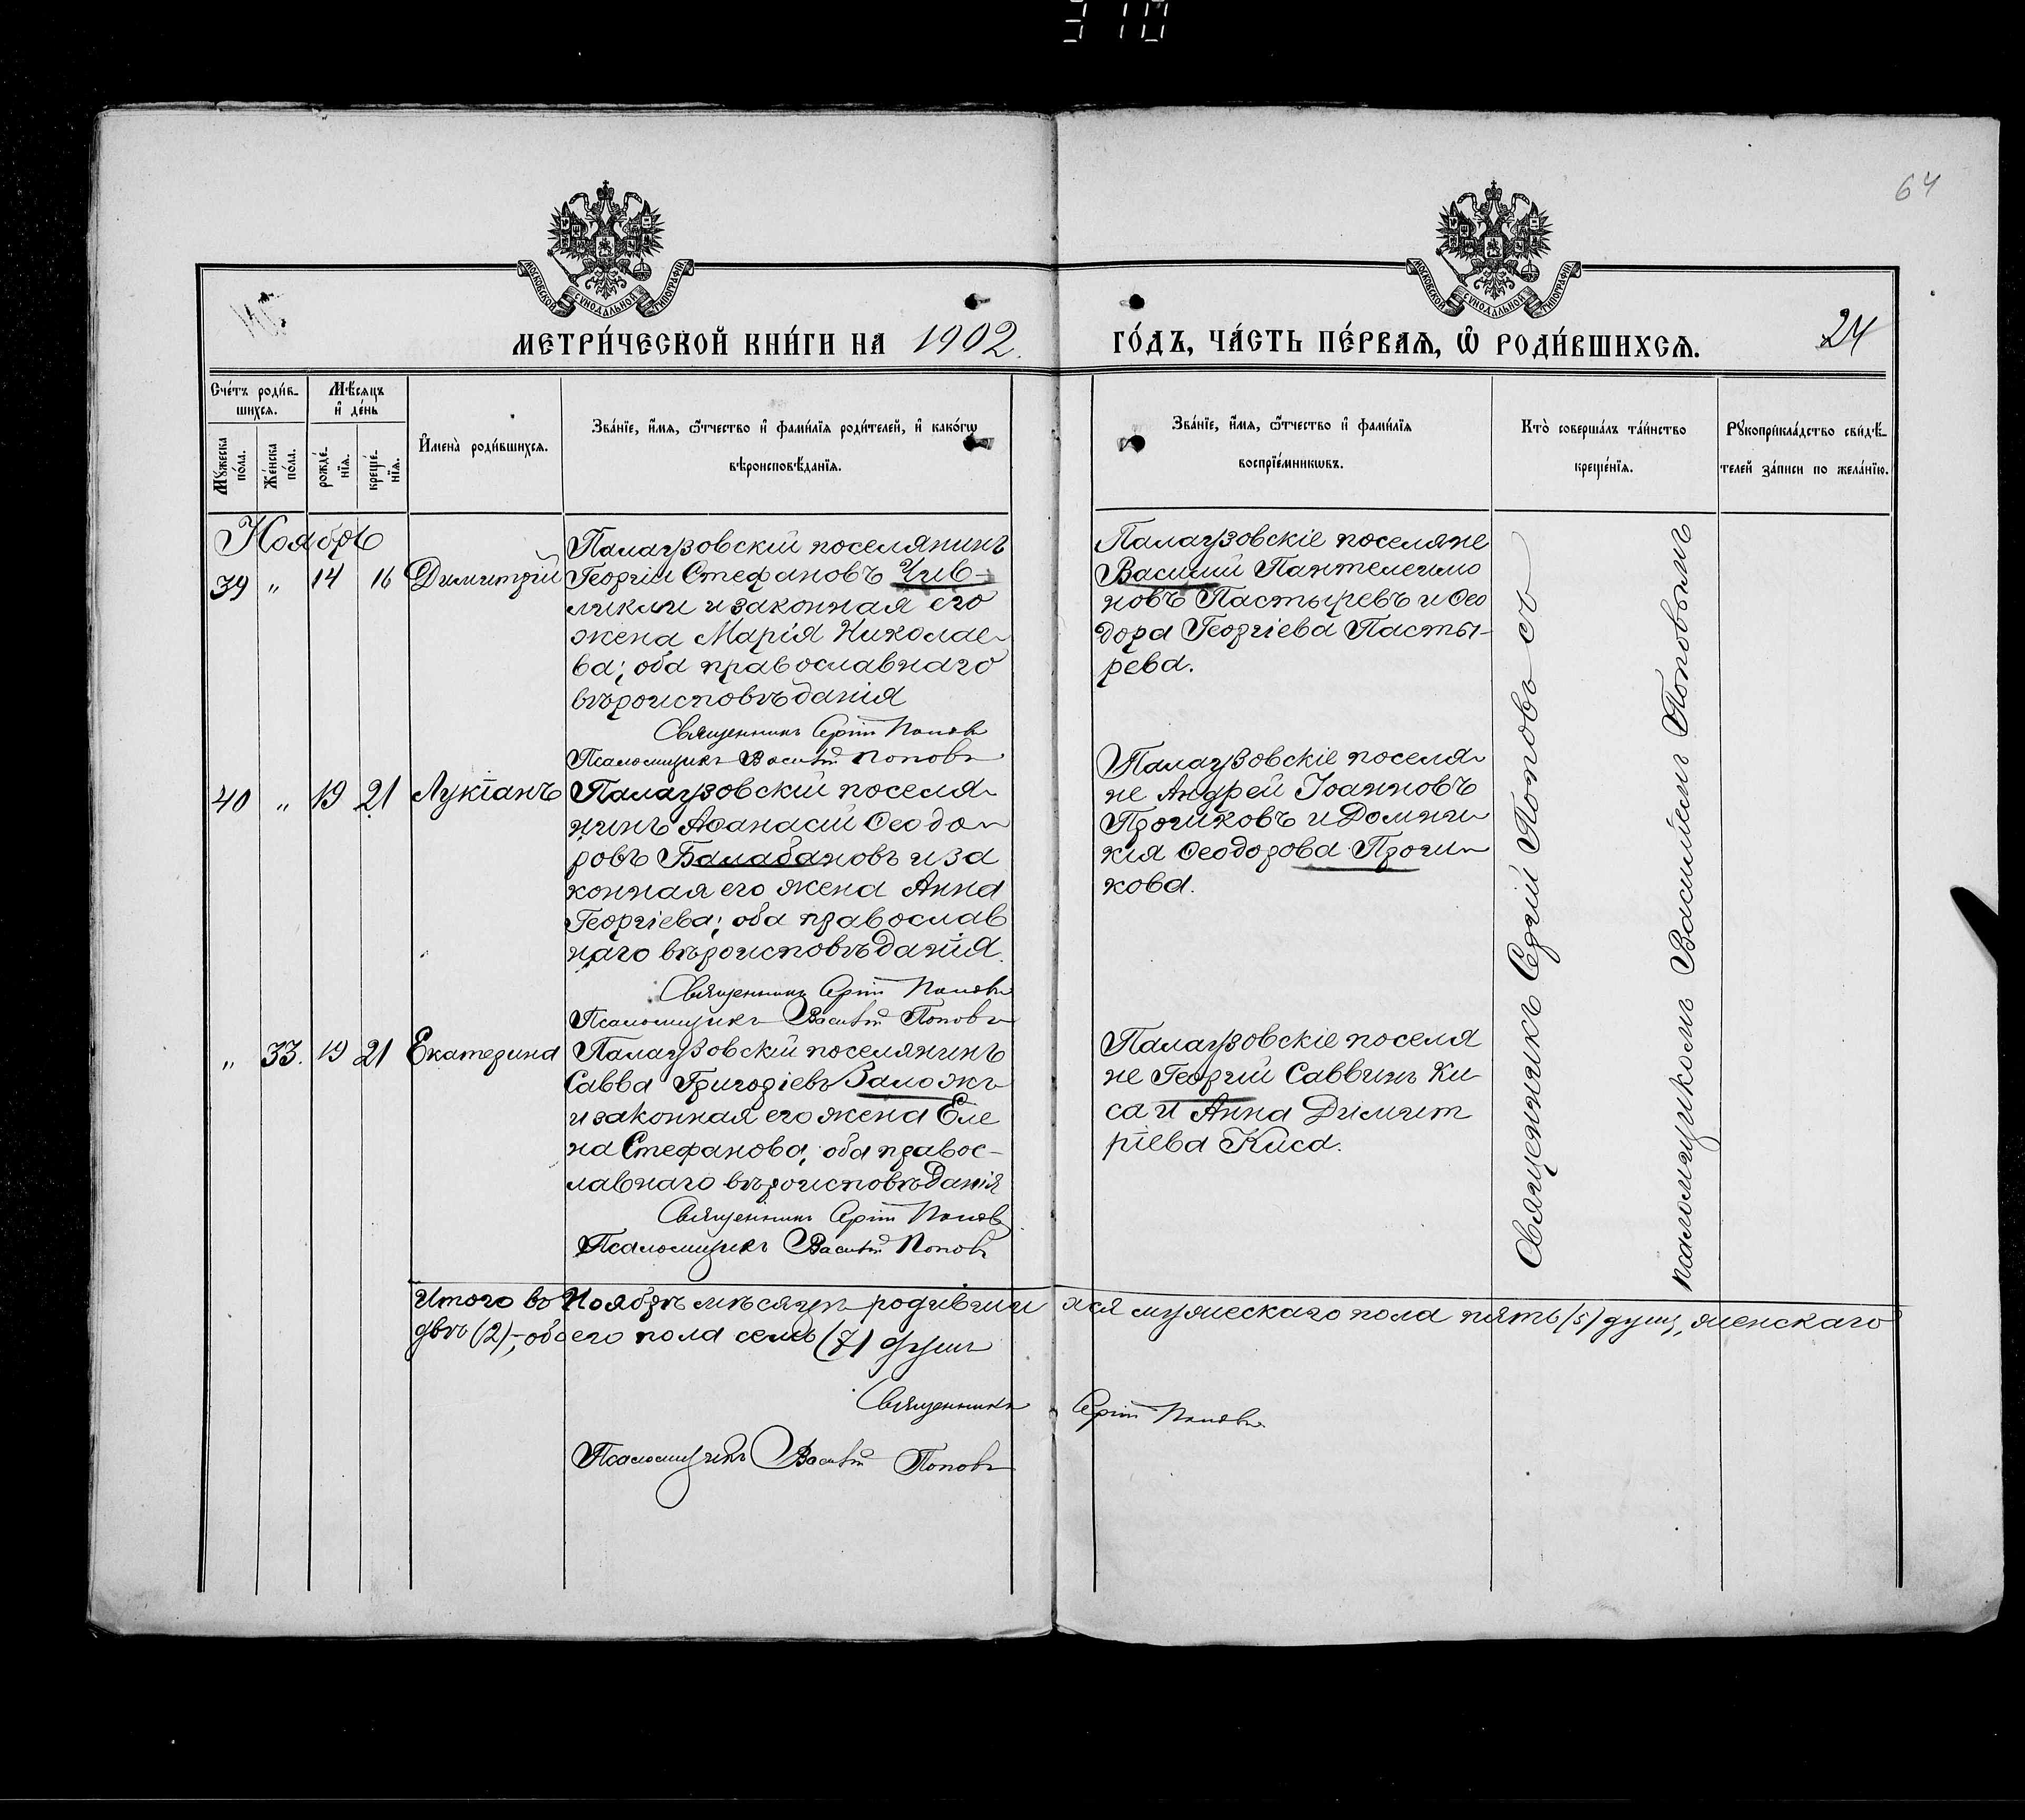 310
64
МОСКОВСКОЙ СУНОДАЛЬНОЙ ТИПОГРАФІИ
МОСКОВСКОЙ СУНОДАЛЬНОЙ ТИПОГРАФІИ
МЕТРИ́ЧЕСКОЙ КНИ́ГИ НА 1902.
ГО́ДЪ, ЧА́СТЬ ПЕ́РВАѦ, Ѡ҆ РОДИ́ВШИХСѦ.
24
Сче́тъ роди́в-
шихсѧ.
Мѣ́сѧцъ
и҆ де́нь
Мꙋ́жеска
по́ла.
Же́нска
по́ла.
рожде́-
нїѧ.
креще́-
нїѧ.
И҆мена̀ роди́вшихсѧ.
Зва́нїе, и҆́мѧ, ѻ҆́тчество и҆ фами́лїѧ роди́телей, и҆ како́гѡ
вѣроисповѣ́данїѧ.
Зва́нїе, и҆́мѧ, ѻ҆́тчество и҆ фами́лїѧ
воспрїе́мникѡвъ.
Кто̀ соверша́лъ та́инство
креще́нїѧ.
Рꙋкоприкла́дство свидѣ́-
телей за́писи по жела́нїю.
Ноябрь
39 " 14 16 Димитрій
Палаузовскій поселянинъ
Георгій Стефановъ Чив-
ликли и законная его
жена Марія Николае-
ва; оба православнаго
вѣроисповѣданія
Священникъ Сергій Поповъ
Псаломщикъ Василій Поповъ
Палаузовскіе поселяне
Василий Пантелеимо
новъ Пастыревъ и Ѳео
дора Георгіева Пасты-
рева.
40 " 19 21 Лукіанъ
Палаузовскій поселя-
нинъ Аѳанасій Ѳеодо-
ровъ Балабановъ и за
конная его жена Анна
Георгіева; оба православ
наго вѣроисповѣданія.
Священникъ Сергій Поповъ
Псаломщикъ Василій Поповъ
Палаузовскіе поселя-
не Андрей Іоанновъ
Прочиковъ и Домни-
кія Ѳеодорова Прочи-
кова.
" 33. 19 21 Екатерина
Палаузовскій поселянинъ
Савва Григоріевъ Заложъ
и законная его жена Еле
на Стефанова; оба правос-
лавнаго вѣроисповѣданія
Священникъ Сергій Поповъ
Псаломщикъ Василій Поповъ
Палаузовскіе поселя
не Георгий Саввинъ Ки-
са и Анна Димит
ріева Киса.
Священникъ Сергій Поповъ съ
псаломщикомъ Василіемъ Поповымъ
Итого въ Ноябрѣ мѣсяцѣ родивши хся мужескаго пола пять (5) душъ, женскаго
двѣ (2), - обоего пола семь (7) душъ
Священникъ Сергій Поповъ.
Псаломщикъ Василій Поповъ